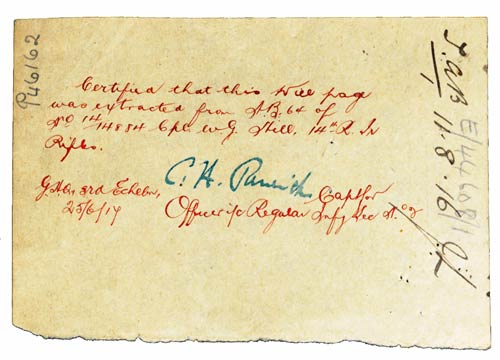 P46162
Certified that this Will page
was extracted from A.B. 64 of
No 14/14884 Cpl. W.G. Hill. 14th R. Ir
Rifles.
C. H. Parrish Capt for
G.H.Q. 3rd Echelon,
25/6/17
Officer i/c Regular Infy Sec No
11.8.16
E/446081